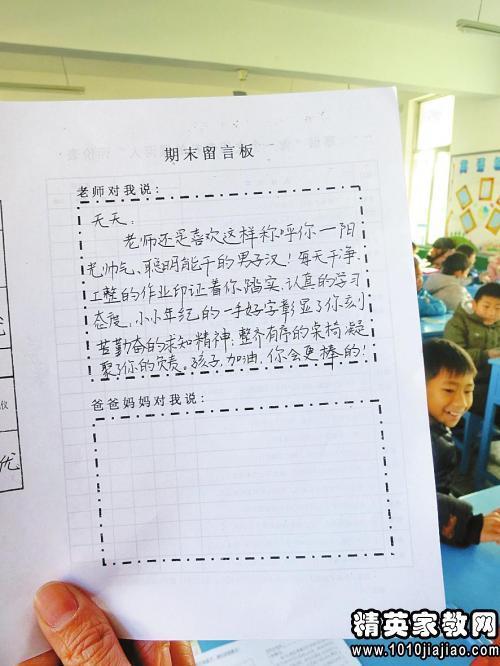 期末留言板
老师对我说:
天天:
老师还是喜欢这样称呼你—阳
光帅气、聪明能干的男子汉!每天干净、
工整的作业印证着你踏实、认真的学习
态度,小小年纪的一手好字彰显了你刻
苦勤奋的求知精神,整齐有序的桌椅凝
聚了你的责。孩子,加油,你会更棒的!
爸爸妈妈对我说:
优
精英家教网
www.1010jiajiao.com